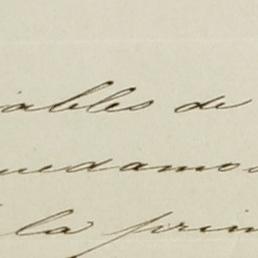 iables de
uedamos
la prin